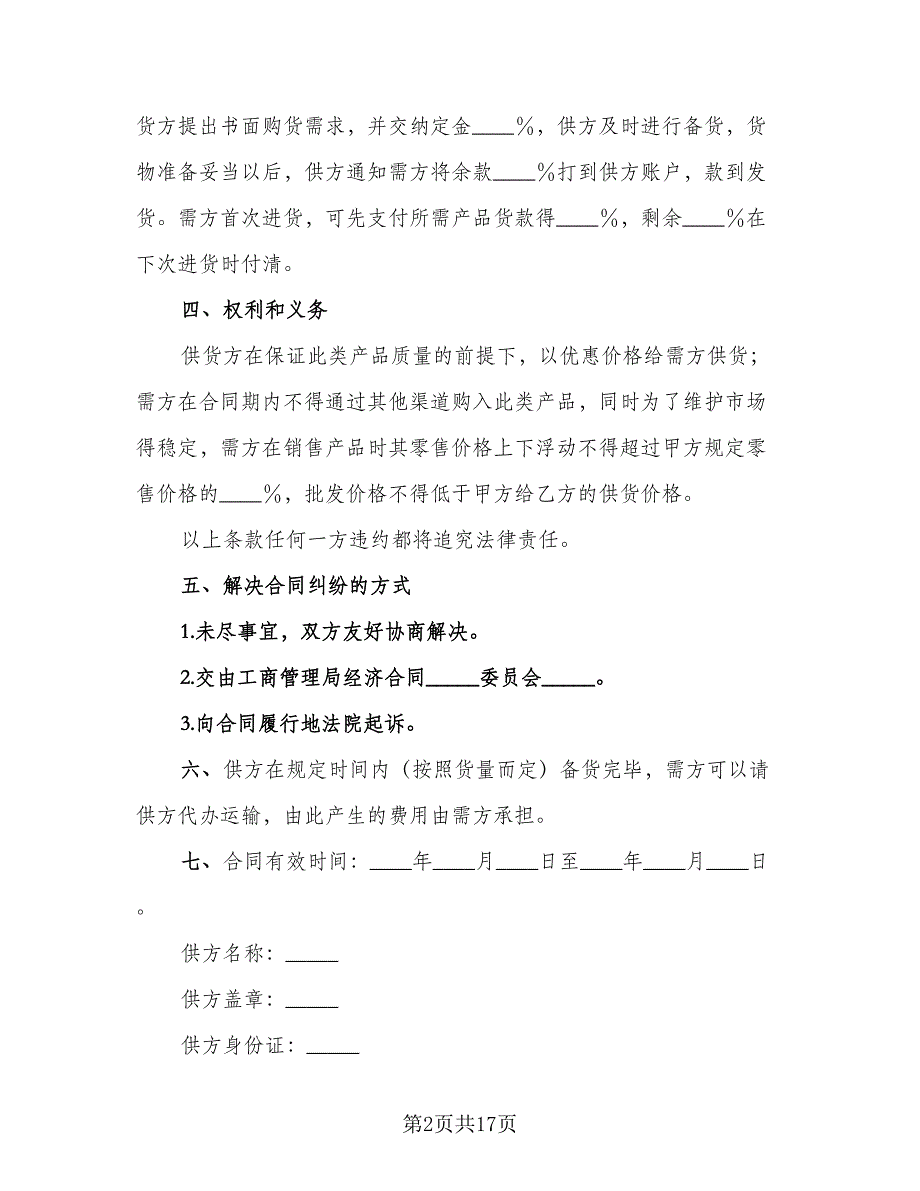 货方提出书面购货需求，并交纳定金____%，供方及时进行备货，货
物准备妥当以后，供方通知需方将余款____%打到供方账户，款到发
货。需方首次进货，可先支付所需产品货款得____%，剩余____%在
下次进货时付清。
四、权利和义务
供货方在保证此类产品质量的前提下，以优惠价格给需方供货；
需方在合同期内不得通过其他渠道购入此类产品，同时为了维护市场
得稳定，需方在销售产品时其零售价格上下浮动不得超过甲方规定零
售价格的____%，批发价格不得低于甲方给乙方的供货价格。
以上条款任何一方违约都将追究法律责任。
五、解决合同纠纷的方式
1.未尽事宜，双方友好协商解决。
2.交由工商管理局经济合同_____委员会_____。
3.向合同履行地法院起诉。
六、供方在规定时间内（按照货量而定）备货完毕，需方可以请
供方代办运输，由此产生的费用由需方承担。
七、合同有效时间：____年____月____日至____年____月____日
。
供方名称：_____
供方盖章：_____
供方身份证：_____
第2页共17页